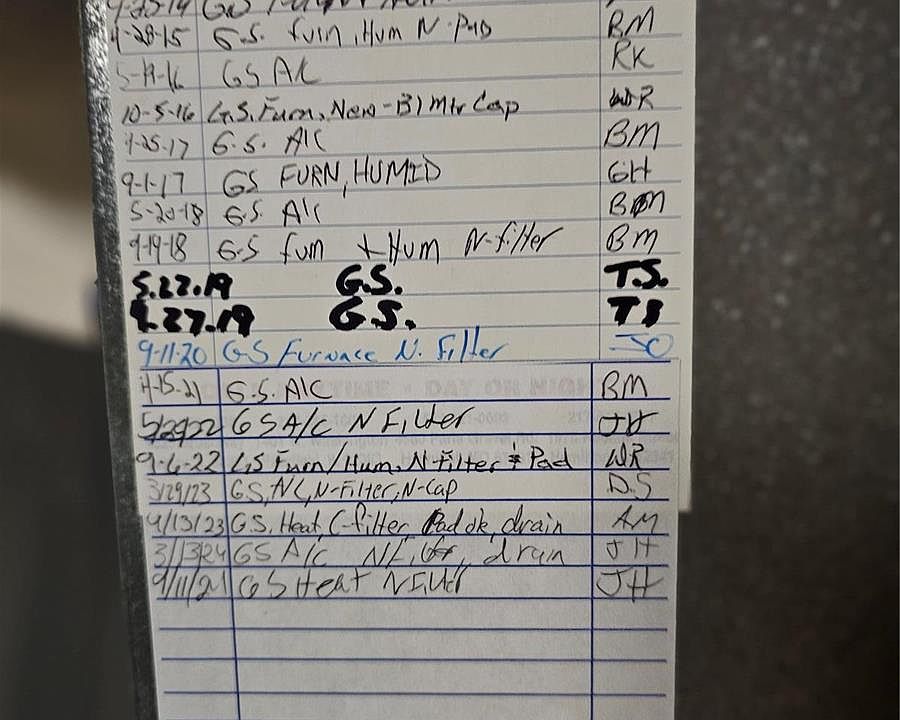 G.S.
4-28-15 G.S. furn, Hum N-PAD BM
5-19-16 GS A/C RK
10-5-16 G.S. Furn, New-Bl Mtr Cap WR
4-25-17 G.S. A/C BM
9-1-17 GS FURN, HUMID GH
5-20-18 G.S. A/C BM
9-19-18 G.S furn + Hum N-filter BM
5.27.19 G.S. T.S.
9.27.19 G.S. TS
9-11-20 GS Furnace N. Filter JO
4-15-21 G.S. A/C BM
DAY OR NIGHT
GS A/c N Filter JH
9-6-22 GS Furn/Hum, N-Filter & Pad WR
3/29/23 GS, N-Filter, N-Cap D.S
9/13/23 GS. Heat, C-filter, Pad ok, drain AM
3/13/24 GS A/c N Filter, drain JH
GS Heat N Filter JH